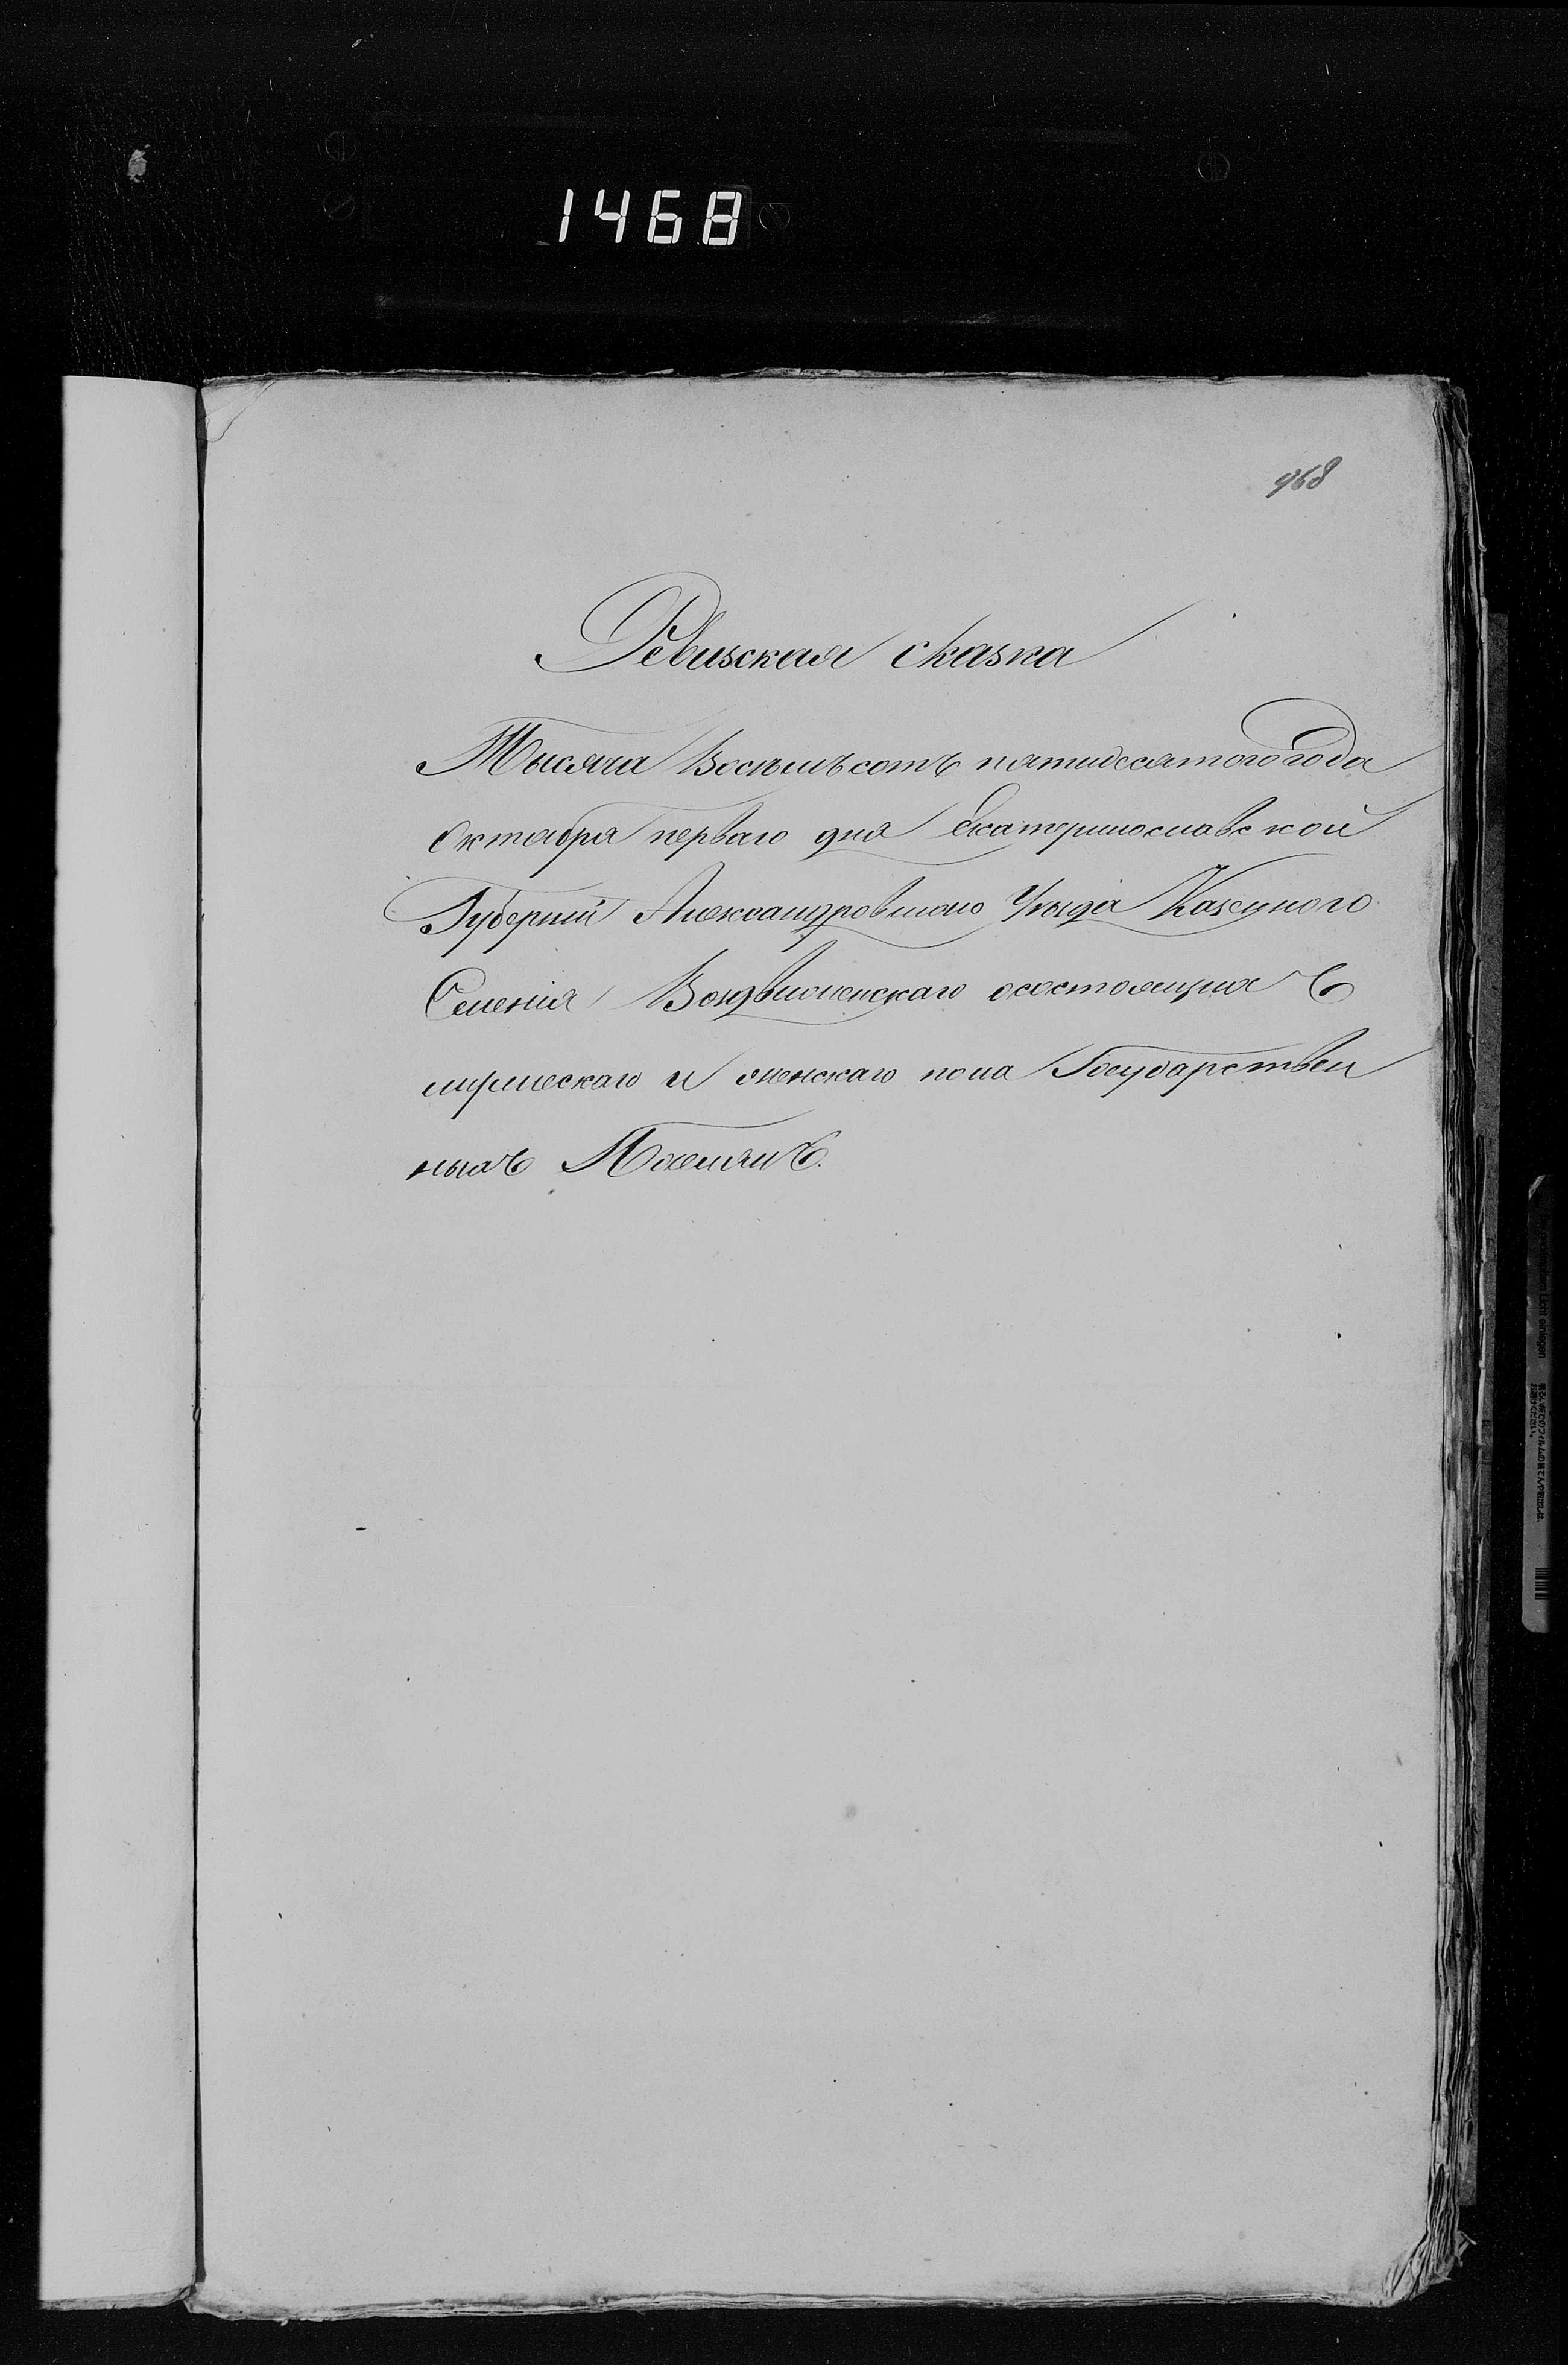 1468
968
Ревизская сказка
Тысяча Восѣмъсотъ пятидесятого года
Октября перваго дня Екатеринославской
Губерніи Александровскаго Уѣзда Казенного
Селенія Воздвиженскаго осостоящихъ
мужескаго и женскаго пола Государствен
ныхъ Поселянъ.